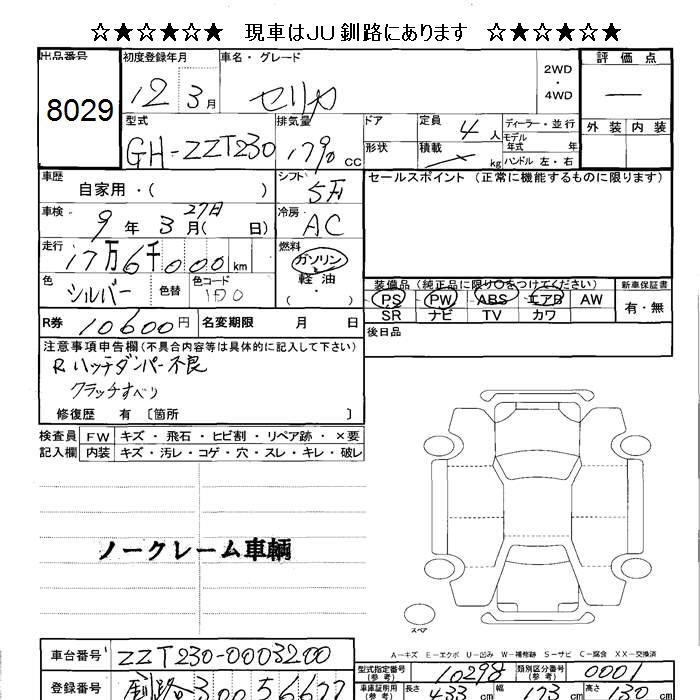 ☆★☆★☆★☆ 現車はJU釧路にあります ☆★☆★☆★☆
出品番号
8029
初度登録年月
12年3月
車名・グレード
セリカ
2WD
・
4WD
評価点
—
外装 内装
型式
GH-ZZT230
排気量
1790cc
ドア
形状
定員 4人
積載 kg
ディーラー・並行
モデル年式 年
ハンドル 左・右
車歴
自家用・( )
シフト
5F
セールスポイント (正常に機能するものに限ります)
車検
9年3月(27日 日)
冷房
AC
走行
17万6千000km
燃料
ガソリン
軽・油
・
色
シルバー
色替
色コード
1D0
装備品(純正品に限り○をつけてください)
PS PW ABS エアB AW
SR ナビ TV カワ
新車保証書
有・無
R券 10600円
名変期限 月 日
後日品
注意事項申告欄(不具合内容等は具体的に記入して下さい)
R.ハッチダンパー不良
クラッチすべり
修復歴 有 〔箇所 〕
検査員記入欄
FW キズ・飛石・ヒビ割・リペア跡・×要
内装 キズ・汚レ・コゲ・穴・スレ・キレ・破レ
ノークレーム車輌
スペア
A－キズ E－エクボ U－凹み W－補修跡 S－サビ C－腐食 XX－交換済
車台番号 ZZT230-0003200
型式指定番号(参考) 10298
類別区分番号(参考) 0001
登録番号 釧路 300
車庫証明用(参考) 長さ 433cm 幅 173cm 高さ 130cm